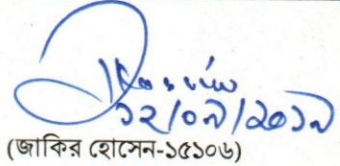 ১২/০৯/২০১৯
(জাকির হোসেন-১৫১০৬)